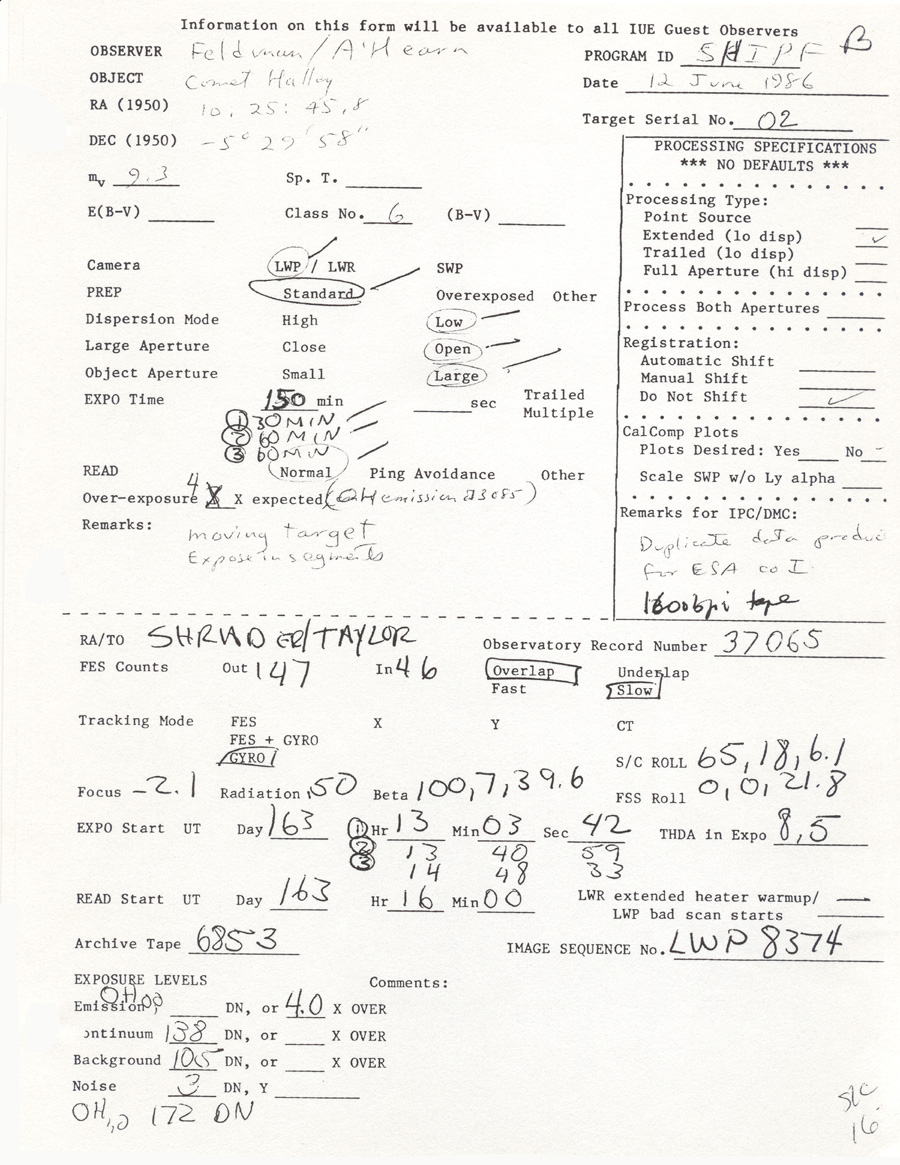 Information on this form will be available to all IUE Guest Observers
OBSERVER Feldman/A'Hearn
PROGRAM ID SHIPF B
OBJECT Comet Halley
Date 12 June 1986
RA (1950) 10, 25: 45,8
Target Serial No. 02
DEC (1950) -5° 29' 58"
mv 9.3 Sp. T.
E(B-V) Class No. 6 (B-V)
PROCESSING SPECIFICATIONS
*** NO DEFAULTS ***
Processing Type:
Point Source
Extended (lo disp) ✓
Trailed (lo disp)
Full Aperture (hi disp)
Process Both Apertures
Registration:
Automatic Shift
Manual Shift
Do Not Shift ✓
CalComp Plots
Plots Desired: Yes No -
Scale SWP w/o Ly alpha
Remarks for IPC/DMC:
Duplicate data produc
for ESA co I
1600bpi tape
Camera LWP / LWR SWP
PREP Standard Overexposed Other
Dispersion Mode High Low
Large Aperture Close Open
Object Aperture Small Large
EXPO Time 150 min sec Trailed
Multiple
① 30 MIN
② 60 MIN
③ 60 MIN
READ Normal Ping Avoidance Other
Over-exposure 4 X expected (OH emission λ3085)
Remarks: moving target
Expose in segments
RA/TO SHRADER/TAYLOR
Observatory Record Number 37065
FES Counts Out 147 In 46 Overlap Underlap
Fast Slow
Tracking Mode FES X Y CT
FES + GYRO
GYRO
S/C ROLL 65,18,6.1
Focus -2.1 Radiation .50 Beta 100,7,39.6 FSS Roll 0,0,21.8
EXPO Start UT Day 163 ① Hr 13 Min 03 Sec 42 THDA in Expo 8,5
② 13 40 59
③ 14 48 33
READ Start UT Day 163 Hr 16 Min 00 LWR extended heater warmup/ —
LWP bad scan starts
Archive Tape 6853
IMAGE SEQUENCE No. LWP 8374
EXPOSURE LEVELS Comments:
Emission DN, or 4.0 X OVER
ontinuum 138 DN, or X OVER
Background 105 DN, or X OVER
Noise 3 DN, Y
OH 172 DN
16